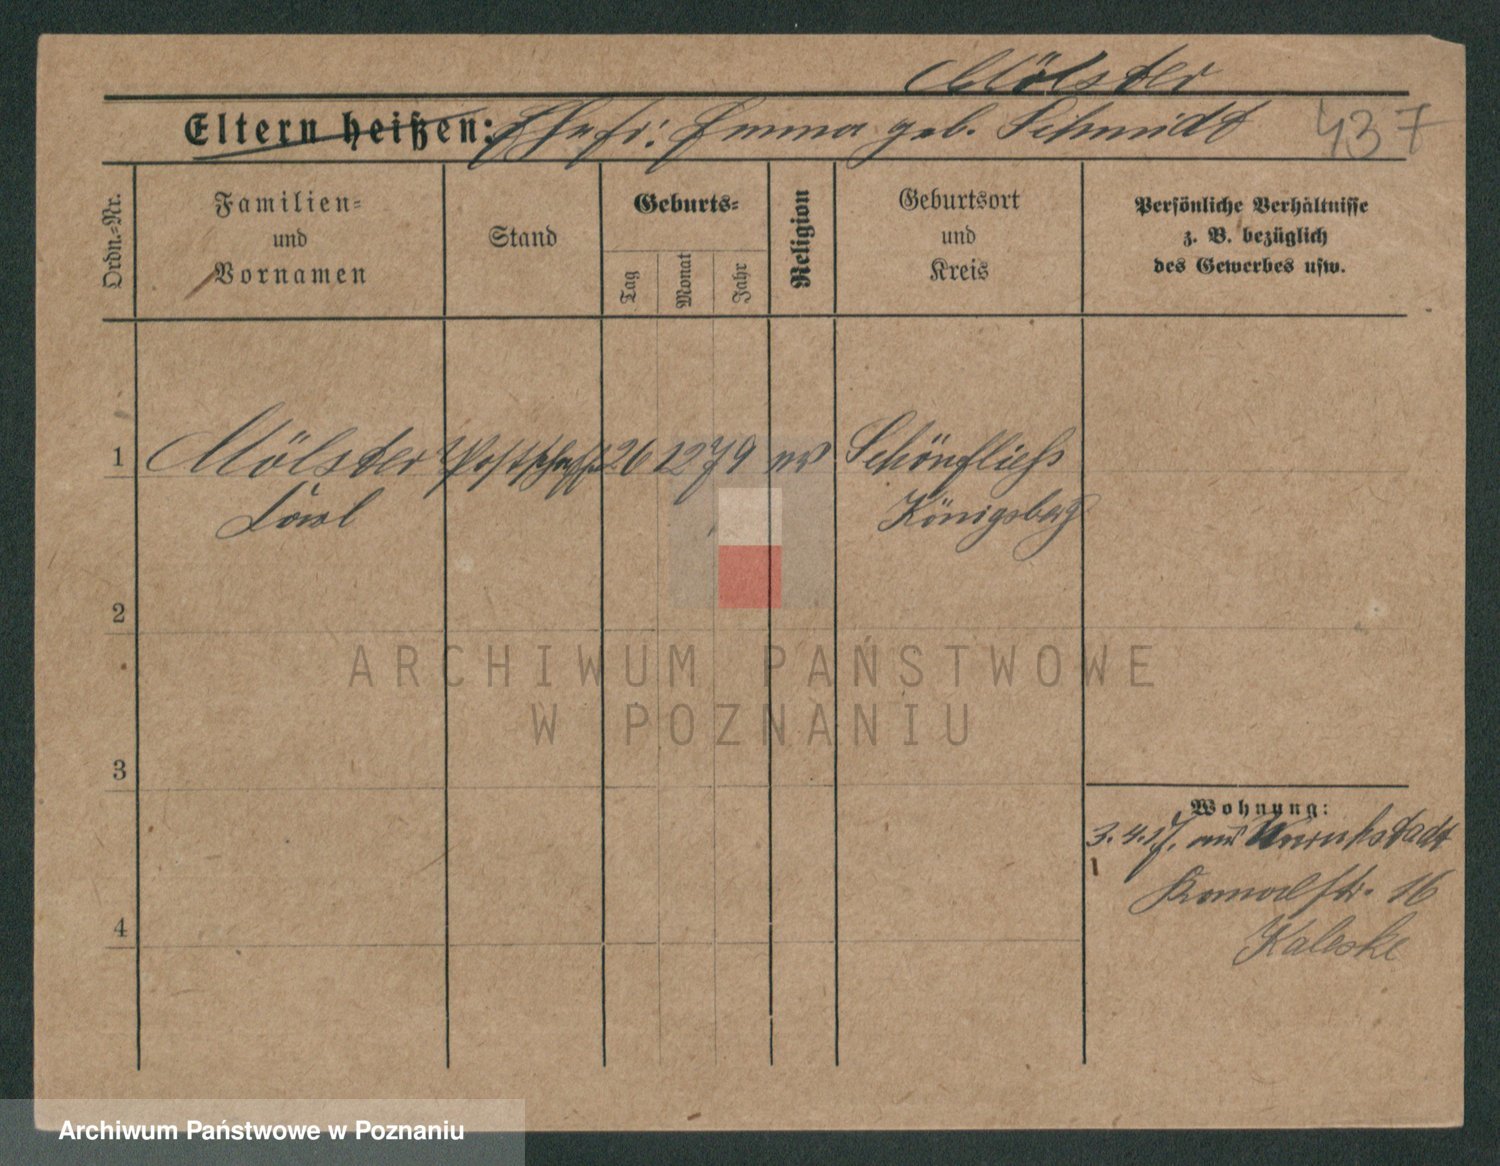 Mölster
Eltern heißen: Ehefr: Emma geb. Schmidt 437
Ordn.-Nr.
Familien-
und
Vornamen
Stand
Geburts-
Tag
Monat
Jahr
Religion
Geburtsort
und
Kreis
Persönliche Verhältnisse
z. B. bezüglich
des Gewerbes usw.
1 Mölster 26 12 79 ev Schönfliess
Königsberg
2
3
4
Wohnung:
3. 4. 17. aus
16
Kaleske
ARCHIWUM PAŃSTWOWE
W POZNANIU
Archiwum Państwowe w Poznaniu